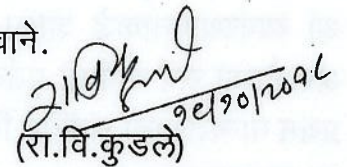 वाने.
१८/१०/२०१८
(रा.वि.कुडले)